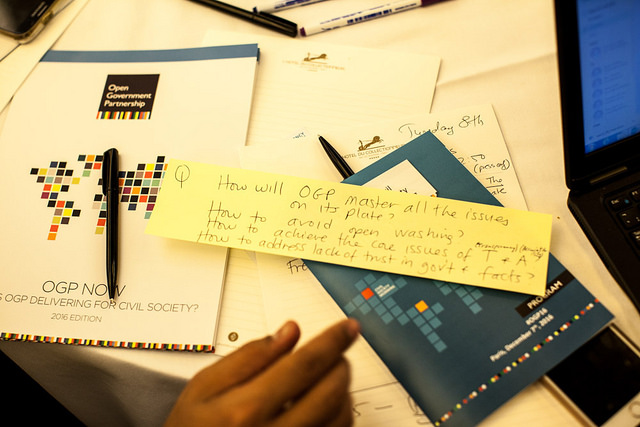 Open
Government
Partnership
OGP NOW
S OGP DELIVERING FOR CIVIL SOCIETY?
2016 EDITION
HOTEL DU COLLECTIONNEUR
Tuesday 8th
Q How will OGP master all the issues
on its plate?
How to avoid open washing?
How to achieve the core issues of T + A
How to address lack of trust in gov't + facts?
PROGRAM
#OGP16
Paris, December 7th, 2016